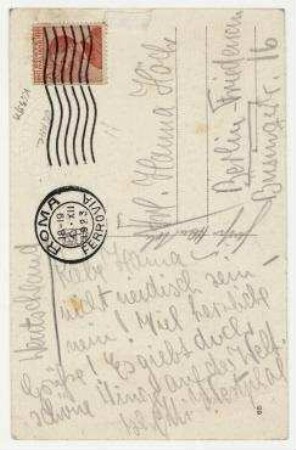 ROMA
FERROVIA
18-19
XII
1923
Frl. Hanna Höch
Berlin Friedenau
Büsingstr. 16
Deutschland
Liebe Hanna –
nicht neidisch sein –
nein! Viel herzliche
Grüße! Es giebt doch
schöne Dinge auf der Welt.